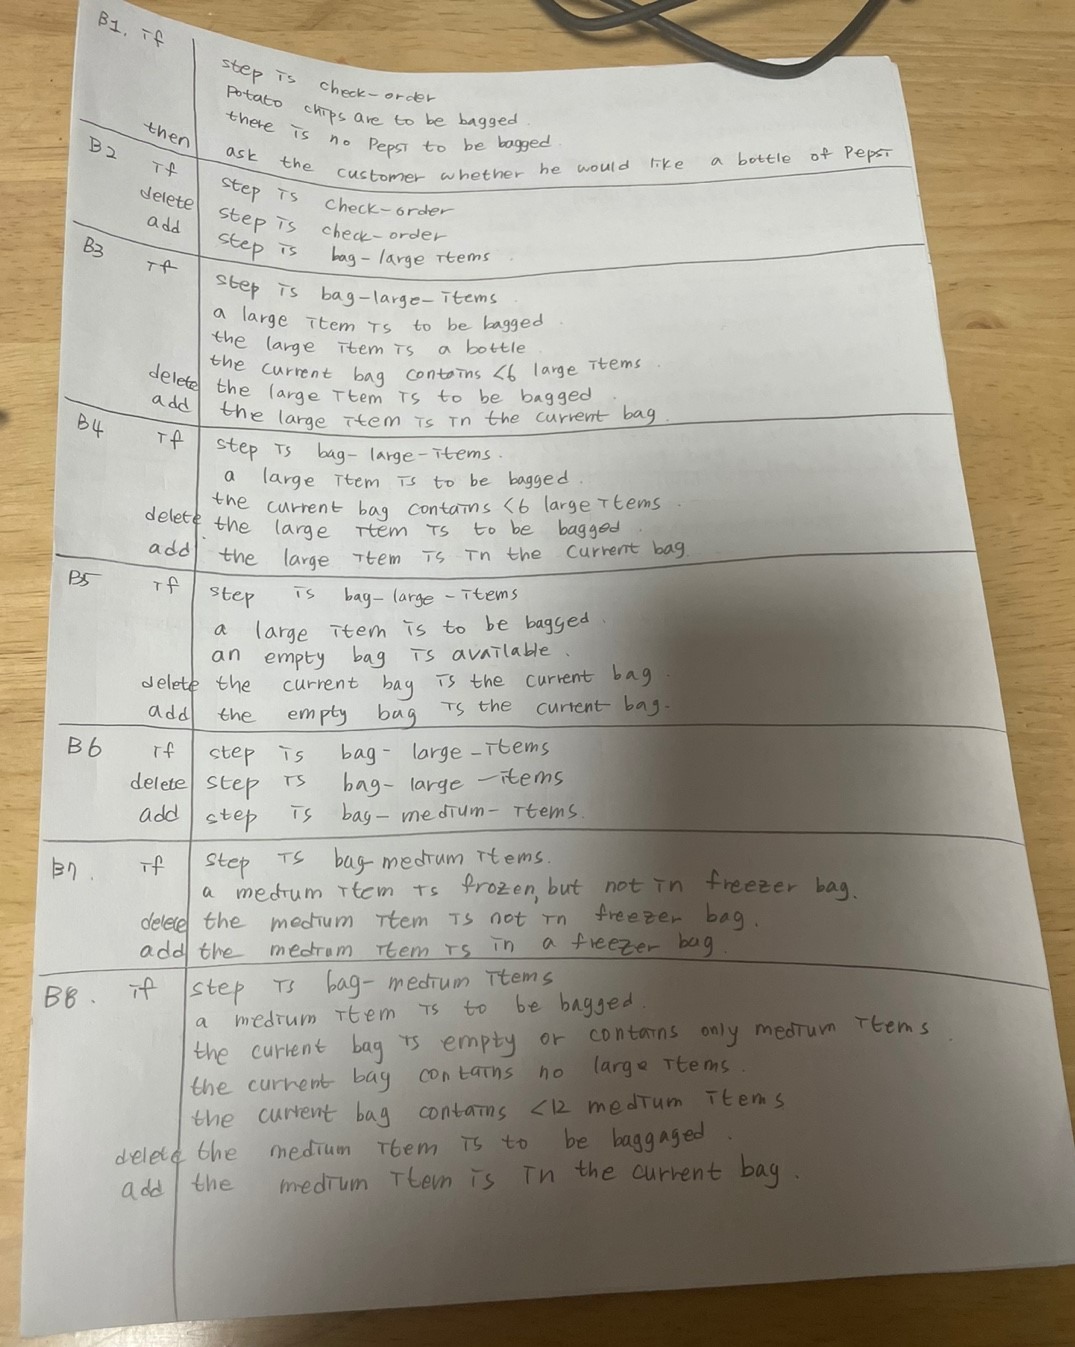 B1. if
step is check-order
Potato chips are to be bagged.
there is no Pepsi to be bagged.
then ask the customer whether he would like a bottle of Pepsi
B2 if step is check-order
delete step is check-order
add step is bag-large items.
B3 if step is bag-large-items
a large item is to be bagged.
the large item is a bottle
the current bag contains <6 large items.
delete the large item is to be bagged.
add the large item is in the current bag.
B4 if step is bag-large-items.
a large item is to be bagged.
the current bag contains <6 large items.
delete the large item is to be bagged.
add the large item is in the current bag.
B5 if step is bag-large-items
a large item is to be bagged.
an empty bag is available.
delete the current bag is the current bag.
add the empty bag is the current bag.
B6 if step is bag-large-items
delete step is bag-large-items
add step is bag-medium-items.
B7. if step is bag-medium items.
a medium item is frozen, but not in freezer bag.
delete the medium item is not in freezer bag.
add the medium item is in a freezer bag.
B8. if step is bag-medium items
a medium item is to be bagged.
the current bag is empty or contains only medium items.
the current bag contains no large items.
the current bag contains <12 medium items
delete the medium item is to be baggaged.
add the medium item is in the current bag.